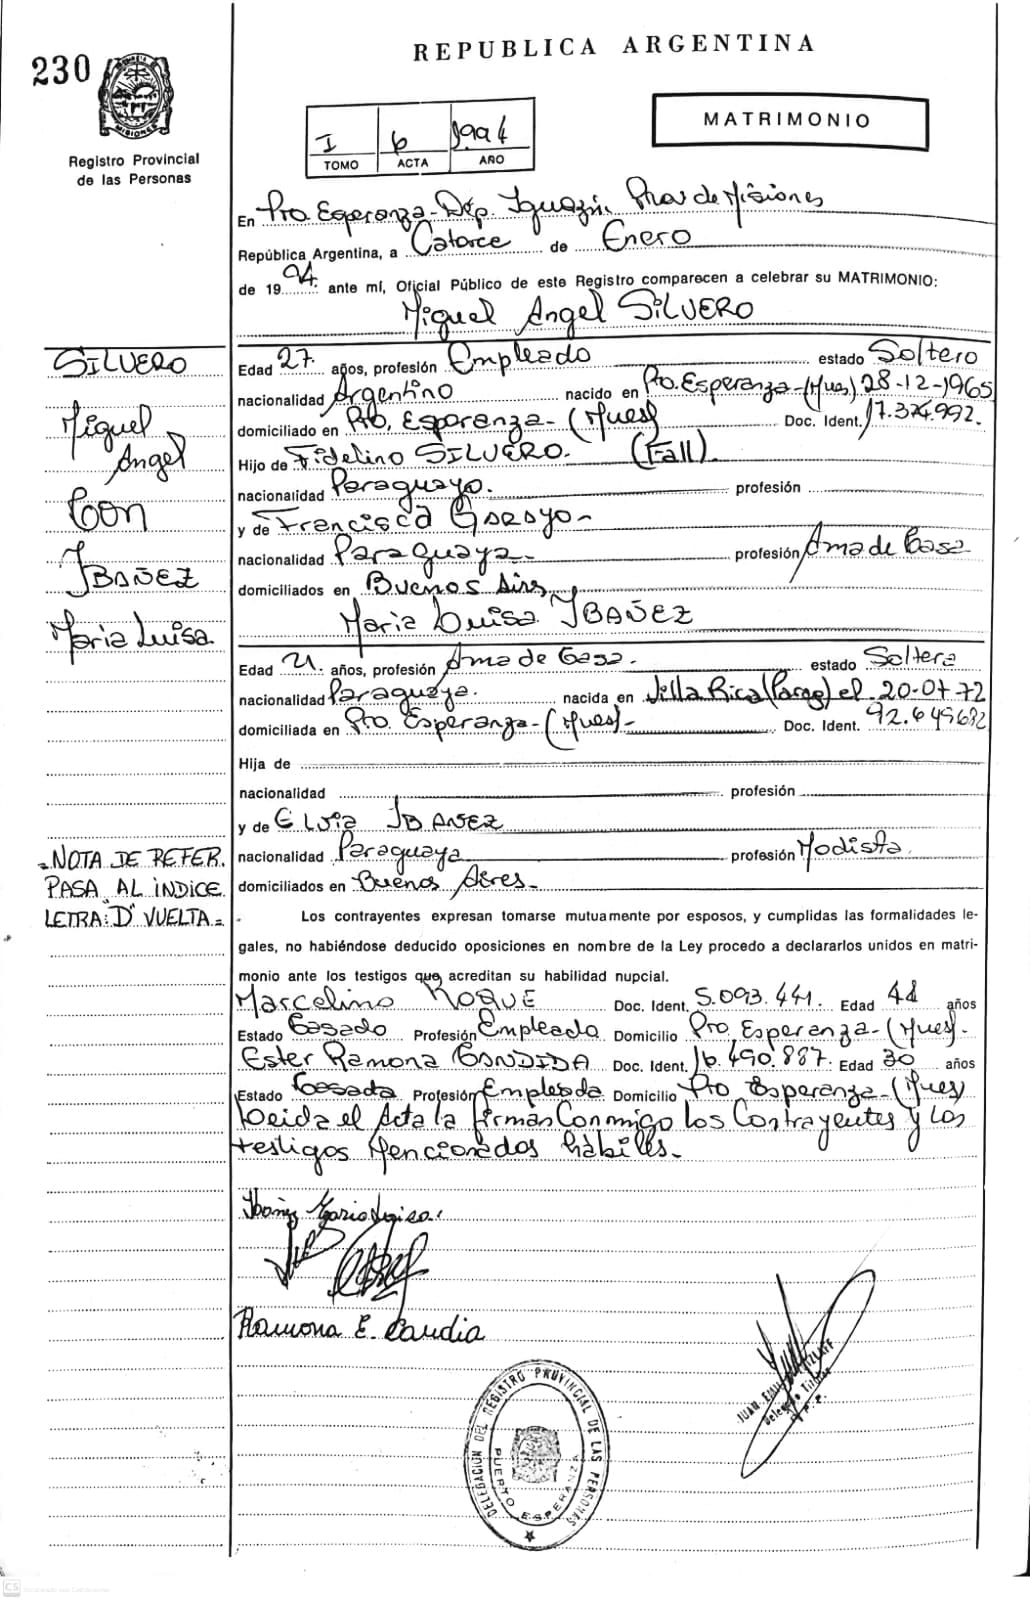 230
MISIONES
Registro Provincial
de las Personas
REPUBLICA ARGENTINA
I 6 1994
TOMO ACTA AÑO
MATRIMONIO
En Pto Esperanza-Dep. Iguazú. Prov de Misiones
República Argentina, a Catorce de Enero
de 19 94. ante mí, Oficial Público de este Registro comparecen a celebrar su MATRIMONIO:
Miguel Angel SILVERO
SILVERO
Miguel
Angel
Con
IBAÑEZ
Maria Luisa
Edad 27. años, profesión Empleado estado Soltero
nacionalidad Argentino nacido en Pto. Esperanza-(Mnes) 28-12-1965
domiciliado en Pto. Esperanza-(Mnes) Doc. Ident. 17.374.992.
Hijo de Fidelino SILVERO. (Fall).
nacionalidad Paraguayo. profesión
y de Francisca Garayo-
nacionalidad Paraguaya- profesión Ama de Casa
domiciliados en Buenos Aires
Maria Luisa IBAÑEZ
Edad 21. años, profesión Ama de Casa. estado Soltera
nacionalidad Paraguaya. nacida en Villa Rica (Parag) el 20-07-72
domiciliada en Pto. Esperanza-(Mnes)- Doc. Ident. 92.649682
Hija de
nacionalidad profesión
y de Elvia IBAÑEZ
nacionalidad Paraguaya profesión Modista.
domiciliados en Buenos Aires-
=NOTA DE REFER.
PASA AL INDICE
LETRA: "D" VUELTA=
Los contrayentes expresan tomarse mutuamente por esposos, y cumplidas las formalidades le-
gales, no habiéndose deducido oposiciones en nombre de la Ley procedo a declararlos unidos en matri-
monio ante los testigos que acreditan su habilidad nupcial.
Marcelino ROQUE Doc. Ident. 5.093.441. Edad 44 años
Estado Casado Profesión Empleado Domicilio Pto. Esperanza-(Mnes)-
Ester Ramona CANDIDA Doc. Ident. 16.490.887. Edad 30 años
Estado Casada Profesión Empleada Domicilio Pto Esperanza-(Mnes)
Leida el Acta la firman Conmigo los Contrayentes y los
testigos Mencionados hábiles-
Ibañez Maria Luisa.
Ramona E. Candia
JUAN
Delegado Titular
DELEGACION DEL REGISTRO PROVINCIAL DE LAS PERSONAS
PUERTO ESPERANZA
CS Escaneado con CamScanner